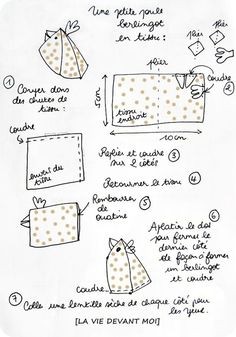 Une petite poule
berlingot
en tissu :
plier
plier
①
Couper dans
des chutes de
tissu :
plier
5cm
tissu
endroit
10cm
coudre
②
coudre
envers du
tissu
Replier et coudre
sur 2 côtés
③
Retourner le tissu
④
Rembourrer
de
ouatine
⑤
⑥
Aplatir le dos
pour fermer le
dernier côté
de façon à former
un berlingot
et coudre
coudre
⑦ Colle une lentille sèche de chaque côté pour
les yeux.
[LA VIE DEVANT MOI]